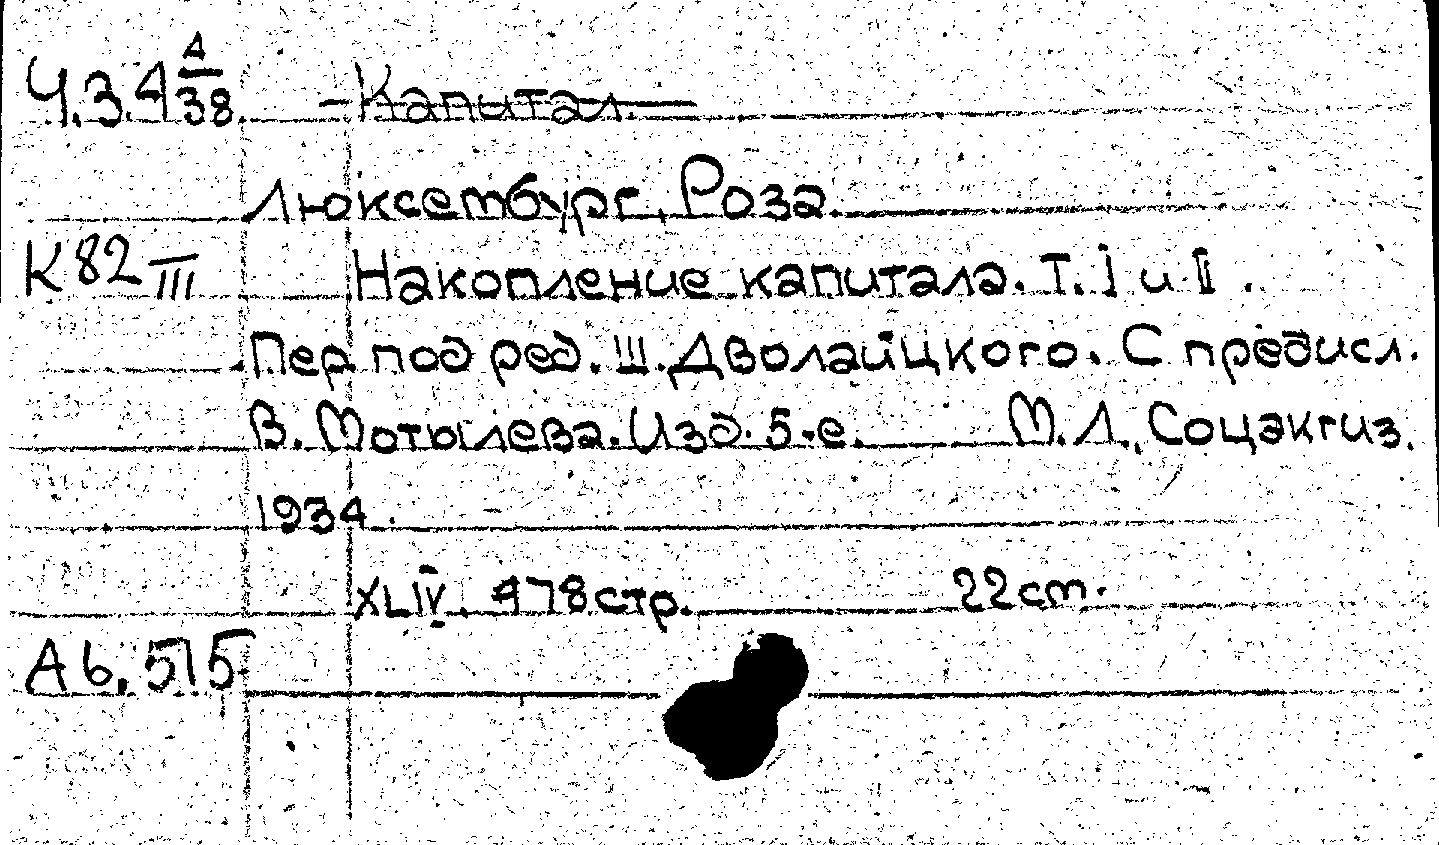 Ч.З.4 А/38. Капитал.
Люксембург, Роза.
К82 III Накопление капитала. Т. I и II.
Пер под ред. Ш. Дволайцкого. С предисл.
В. Мотылева. Изд. 5-е. М.Л., Соцэкгиз.
1934.
XLIV. 478 стр. 22 cm.
А6.515